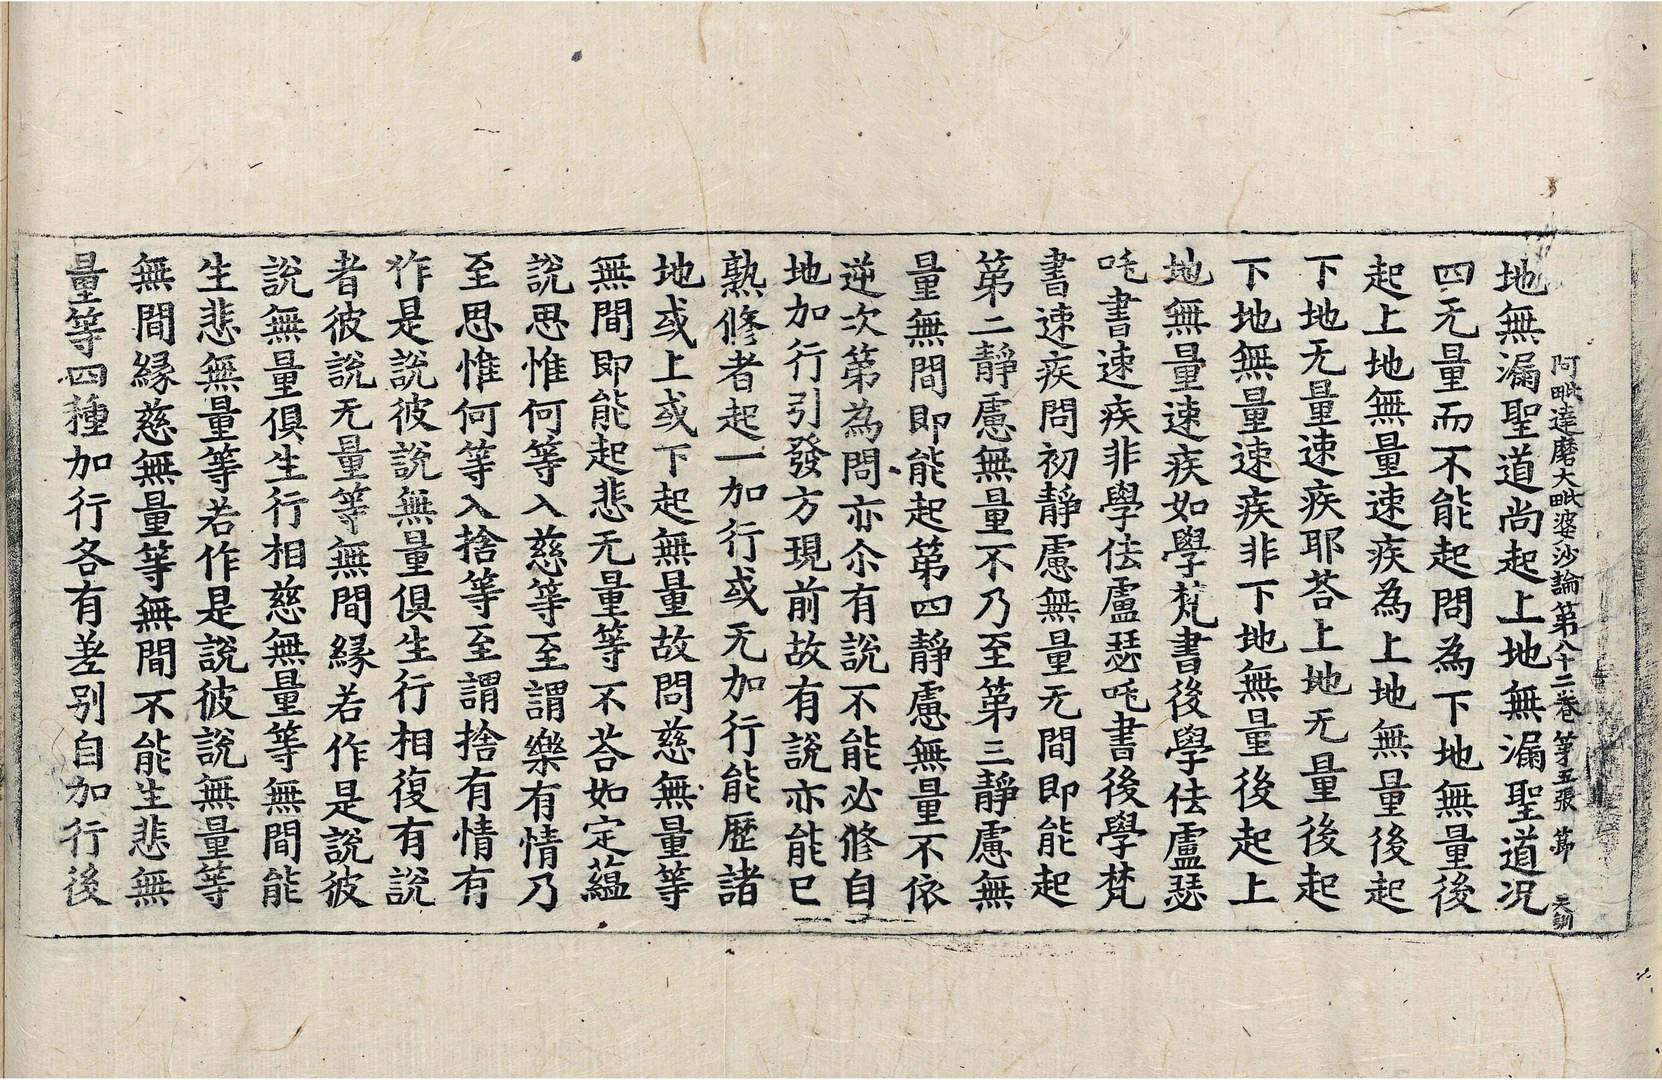 阿毗達磨大毗婆沙論第八十二卷 第五張 弗 天訓
地無漏聖道尚起上地無漏聖道況
四无量而不能起問為下地無量後
起上地無量速疾為上地無量後起
下地无量速疾耶荅上地无量後起
下地無量速疾非下地無量後起上
地無量速疾如學梵書後學佉盧瑟
吒書速疾非學佉盧瑟吒書後學梵
書速疾問初靜慮無量无間即能起
第二靜慮無量不乃至第三靜慮無
量無間即能起第四靜慮無量不依
逆次第為問亦尒有說不能必修自
地加行引發方現前故有說亦能已
熟修者起一加行或无加行能歷諸
地或上或下起無量故問慈無量等
無間即能起悲无量等不荅如定蘊
說思惟何等入慈等至謂樂有情乃
至思惟何等入捨等至謂捨有情有
作是說彼說無量俱生行相復有說
者彼說无量等無間縁若作是說彼
說無量俱生行相慈無量等無間能
生悲無量等若作是說彼說無量等
無間縁慈無量等無間不能生悲無
量等四種加行各有差別自加行後